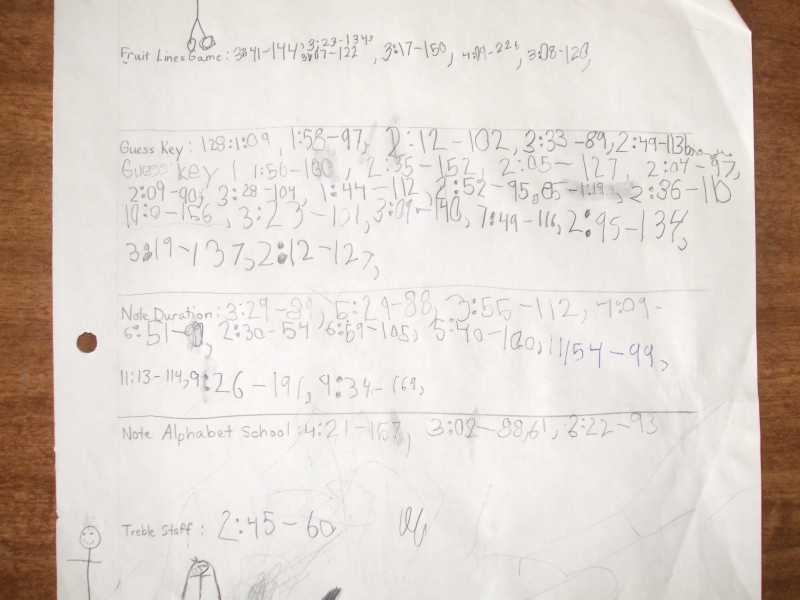 3:23-134,
Fruit Lines Game: 3:41-144, 3:07-122, 3:17-150, 4:04-226, 3:08-120,
Guess Key: 128:1:09, 1:58-97, 2:12-102, 3:33-89, 2:49-113
Guess key 1 1:56-100, 2:35-152, 2:05-127, 2:04-97,
2:09-90, 3:28-104, 1:44-112, 2:52-95, 2:36-110
10:0-156, 3:23-101, 3:09-140, 7:49-116, 2:95-134,
3:19-137, 2:12-127,
Note Duration: 3:29-89, 5:29-88, 3:55-112, 7:09-
6:51- 2:30-54, 6:59-105, 5:40-100, 11/54-99,
11:13-114, 9:26-191, 9:34-169,
Note Alphabet School: 4:21-157, 3:02-88,61, 3:22-93
Treble Staff: 2:45-60